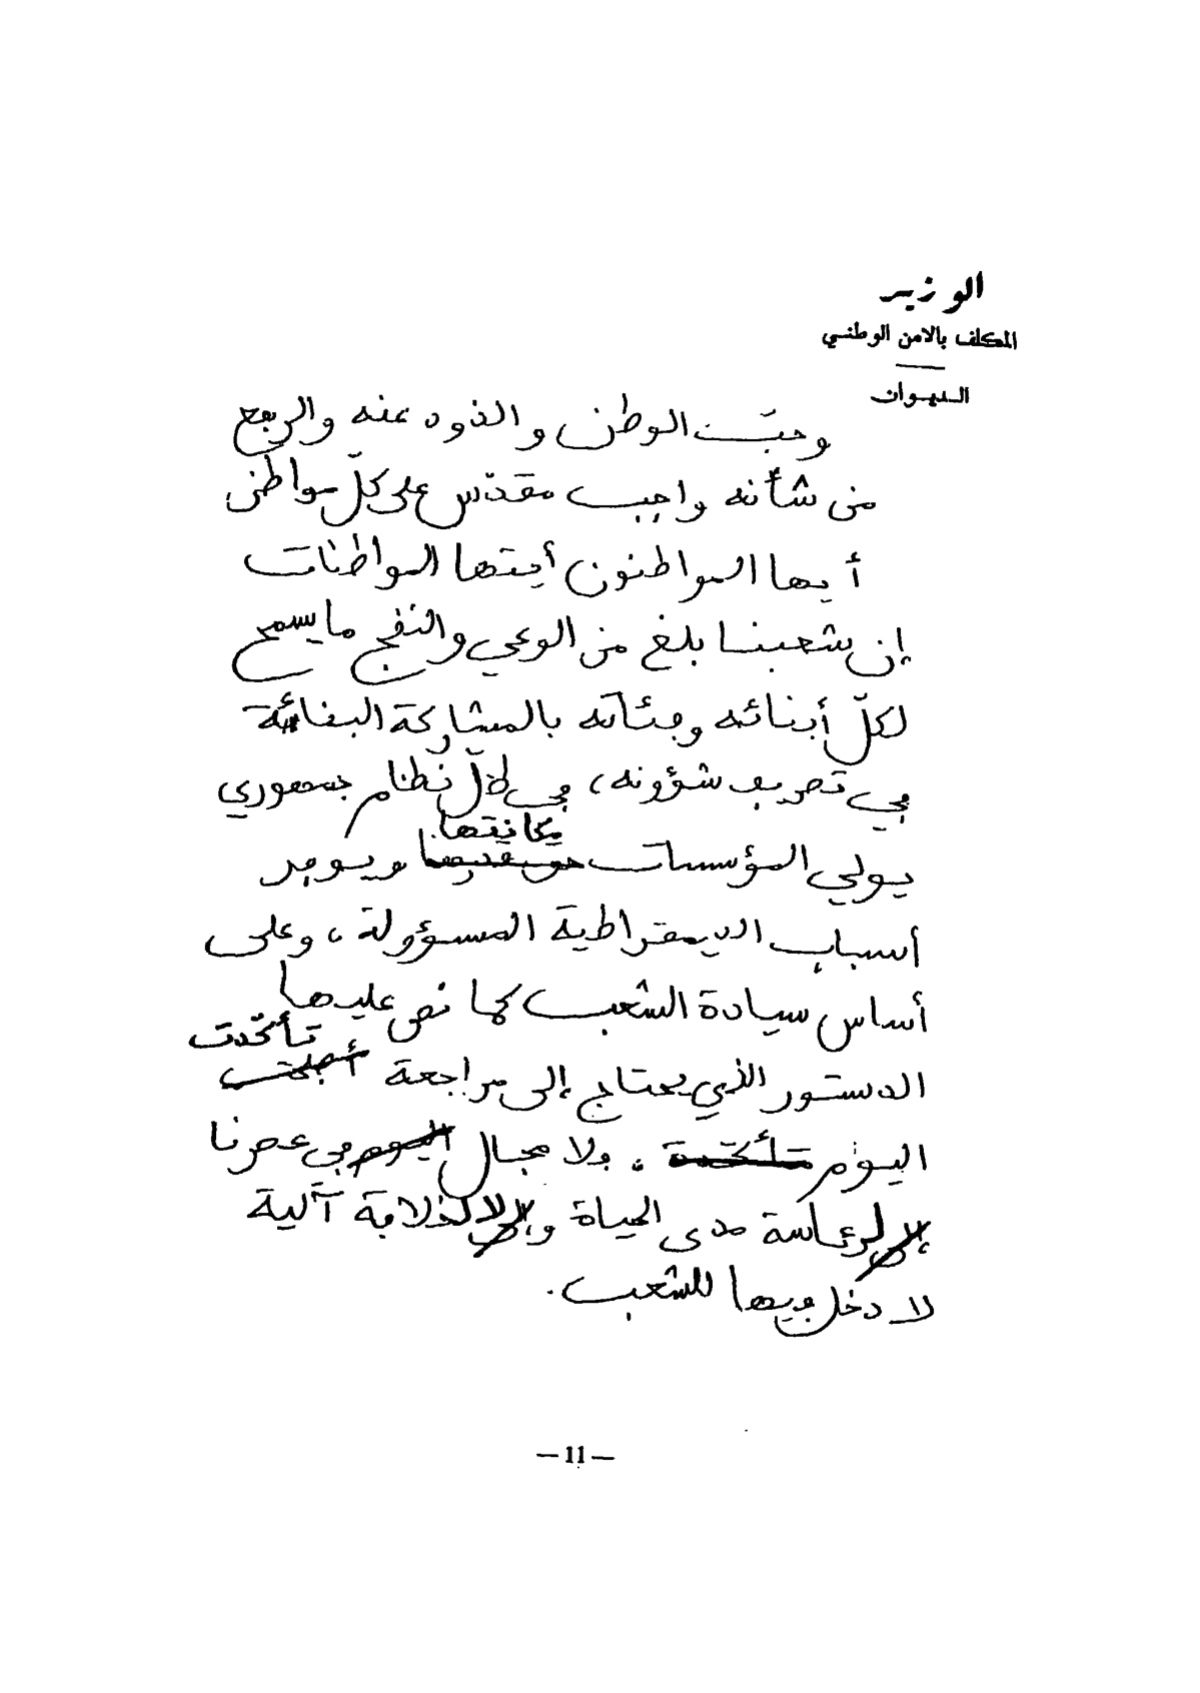 الوزير
المكلف بالامن الوطني
الديوان
وحبّ الوطن والذود عنه والرفع
من شأنه واجب مقدّس على كلّ مواطن
أيها المواطنون أيتها المواطنات
إن شعبنا بلغ من الوعي والنضج ما يسمح
لكلّ أبنائه وفئاته بالمشاركة البناءة
في تصريف شؤونه، في ظلّ نظام جمهوري
مكانتها
يولي المؤسسات ويوفر
أسباب الديمقراطية المسؤولة، وعلى
أساس سيادة الشعب كما نص عليها
تأكّدت
الدستور الذي يحتاج إلى مراجعة أصبحت
اليوم متأكدة. ولا مجال اليوم في عصرنا
لرئاسة مدى الحياة و لخلافة آلية
لا دخل فيها للشعب.
— 11 —